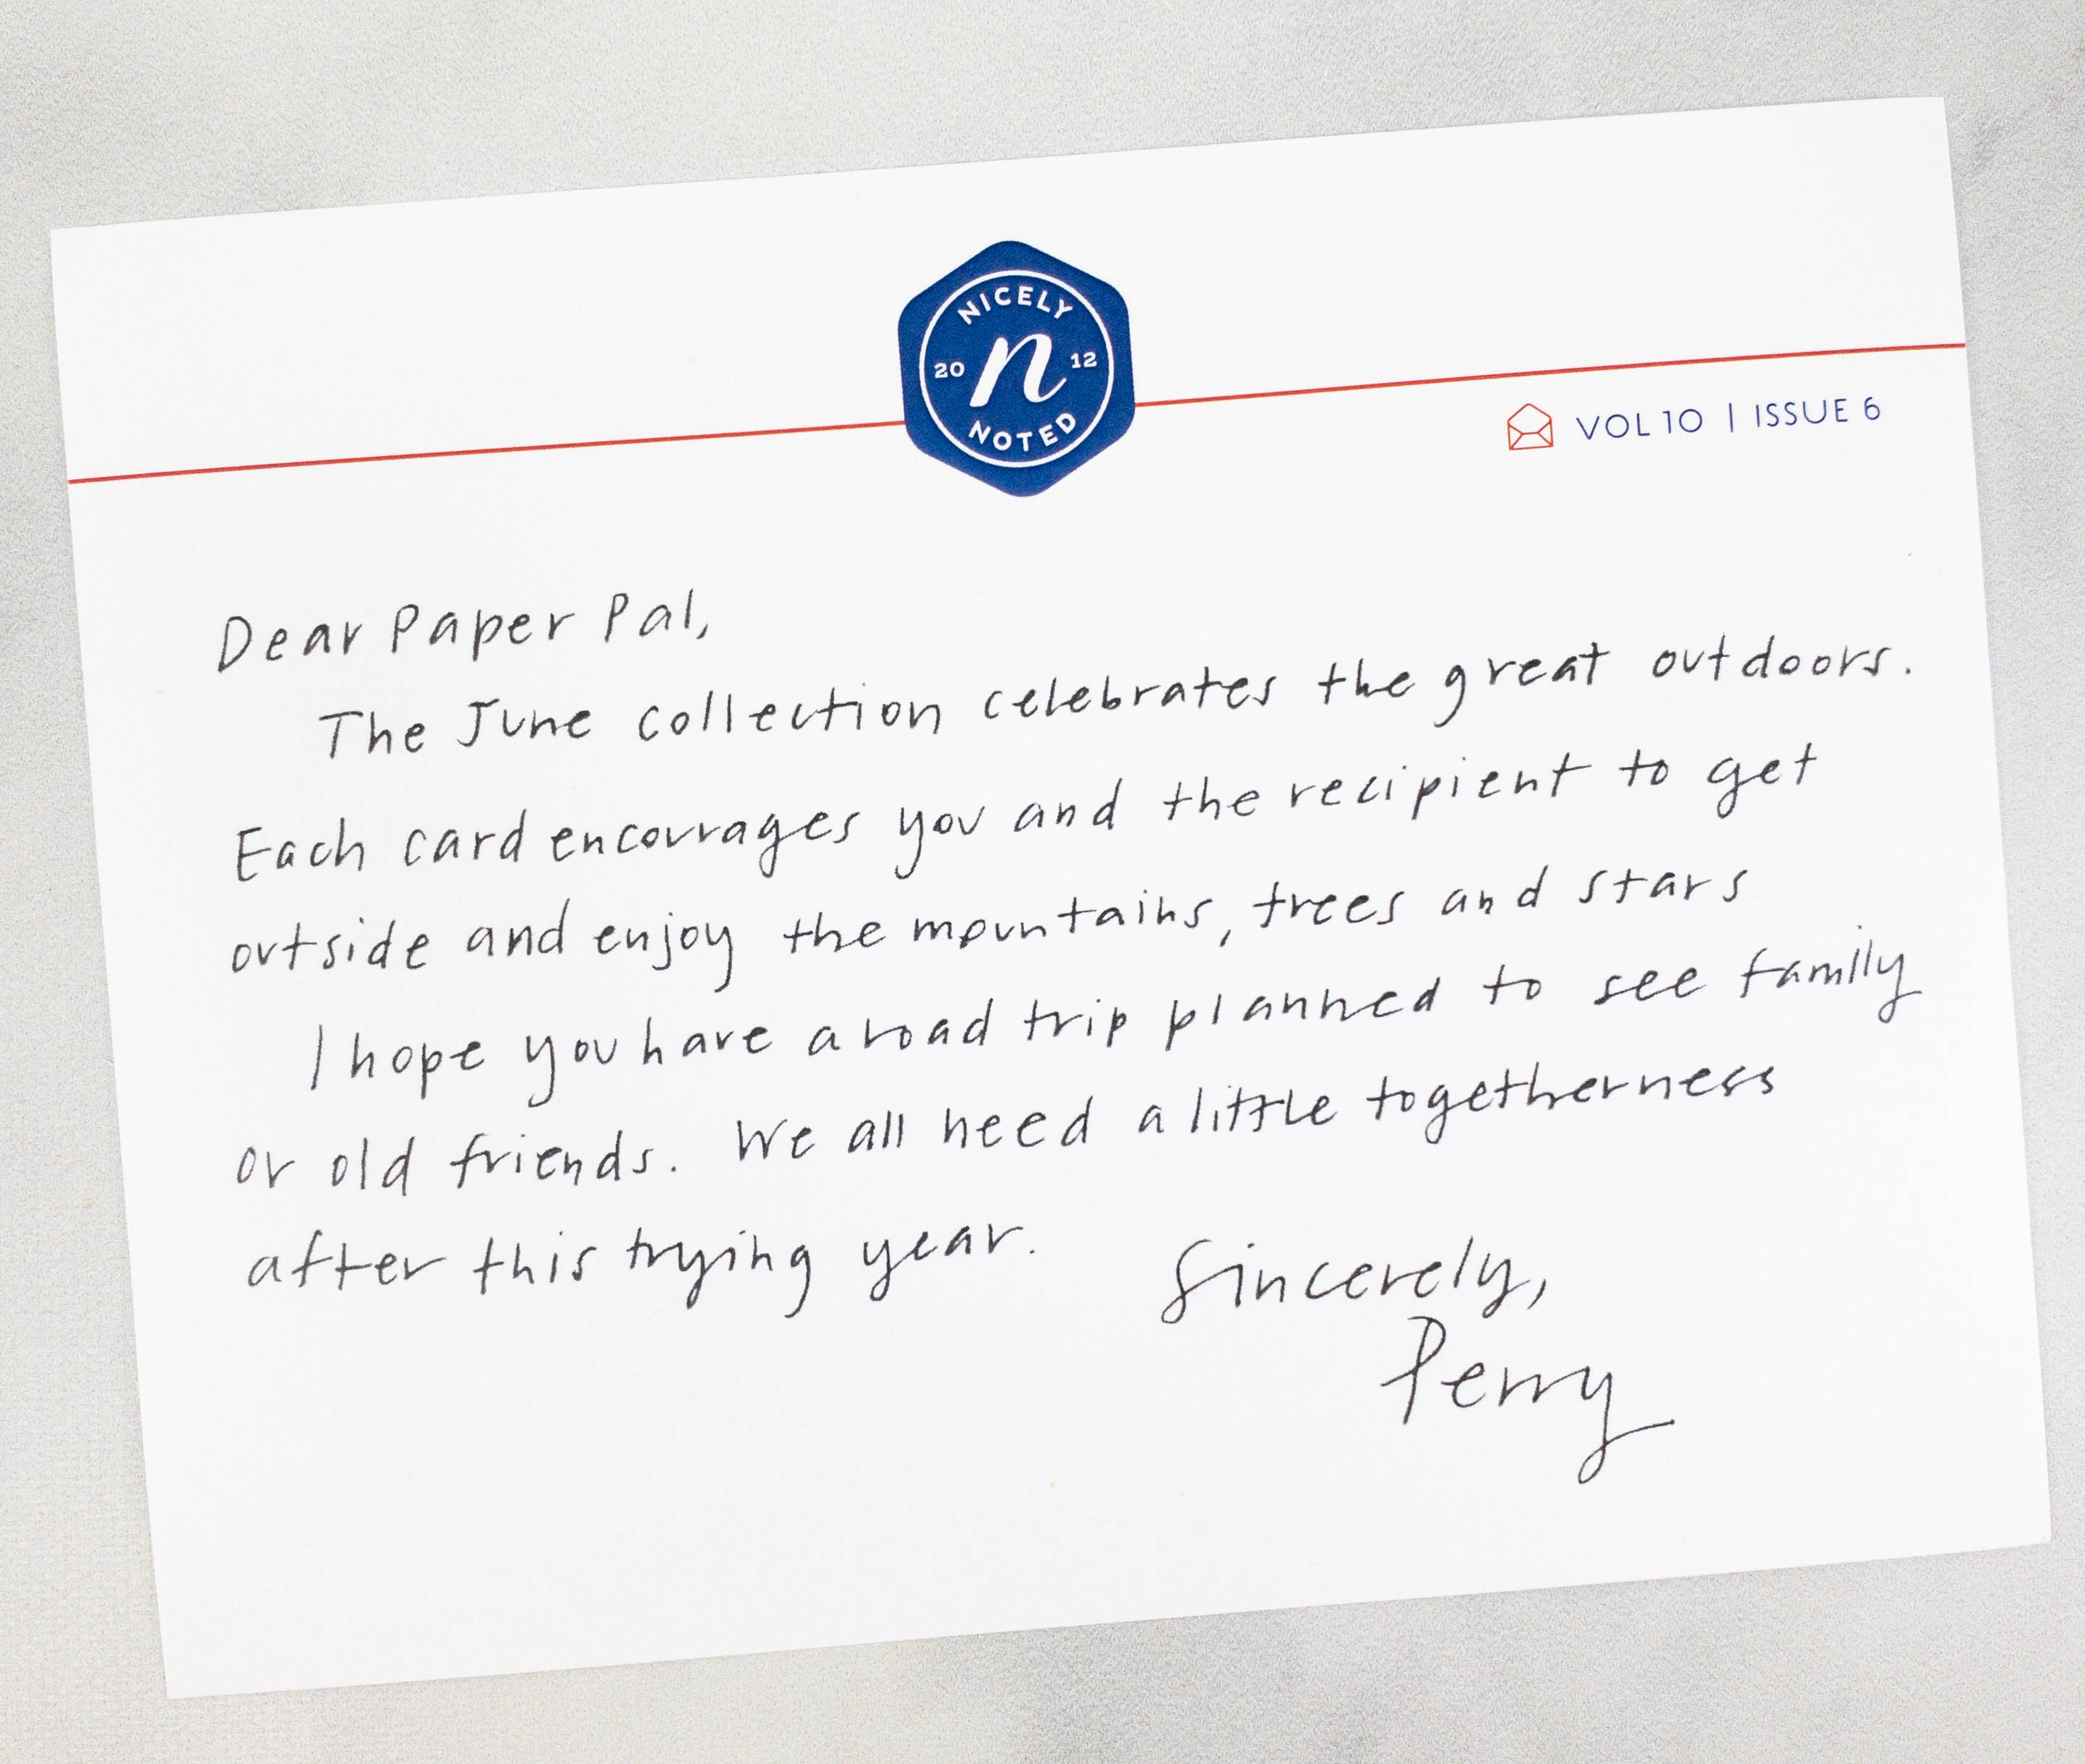 NICELY
20 n 12
NOTED
VOL 10 | ISSUE 6
Dear Paper Pal,
The June collection celebrates the great outdoors.
Each card encourages you and the recipient to get
outside and enjoy the mountains, trees and stars
I hope you have a road trip planned to see family
or old friends. We all need a little togetherness
after this trying year.
Sincerely,
Perry